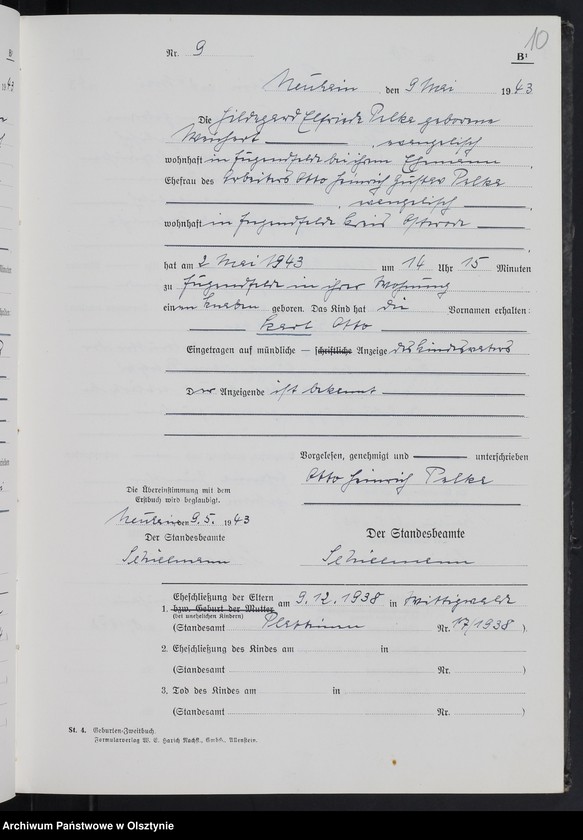 10
B¹
Nr. 9
Neuhain, den 9 Mai 1943
Die Hildegard Elfriede Pelka geborene
Weichert, evangelisch
wohnhaft in Jugendfelde bei ihrem Ehemann,
Ehefrau des Arbeiters Otto Heinrich Gustav Pelka
, evangelisch
wohnhaft in Jugendfelde Kreis Osterode
,
hat am 2 Mai 1943 um 14 Uhr 15 Minuten
zu Jugendfelde in ihrer Wohnung
einen Knaben geboren. Das Kind hat die Vornamen erhalten:
Karl Otto
Eingetragen auf mündliche — schriftliche Anzeige des Kindesvaters
Der Anzeigende ist bekannt
Vorgelesen, genehmigt und unterschrieben
Otto Heinrich Pelka
Die Übereinstimmung mit dem
Erstbuch wird beglaubigt.
Neuhain den 9.5. 1943
Der Standesbeamte
Der Standesbeamte
1. Eheschließung der Eltern am 9.12.1938 in Wittigwalde
bzw. Geburt der Mutter
(bei unehelichen Kindern)
(Standesamt Nr. 17/1938)
2. Eheschließung des Kindes am in
(Standesamt Nr. )
3. Tod des Kindes am in
(Standesamt Nr. )
St. 4. Geburten-Zweitbuch.
Formularverlag W. E. Harich Nachf., GmbH., Allenstein.
Archiwum Państwowe w Olsztynie